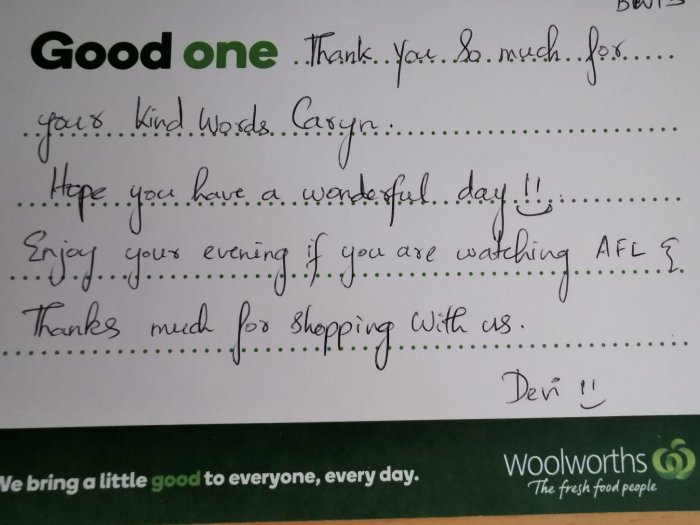 Good one Thank you so much for
your kind words Caryn.
Hope you have a wonderful day !!
Enjoy your evening if you are watching AFL &
Thanks much for shopping with us.
Devi !!
We bring a little good to everyone, every day.
Woolworths
The fresh food people